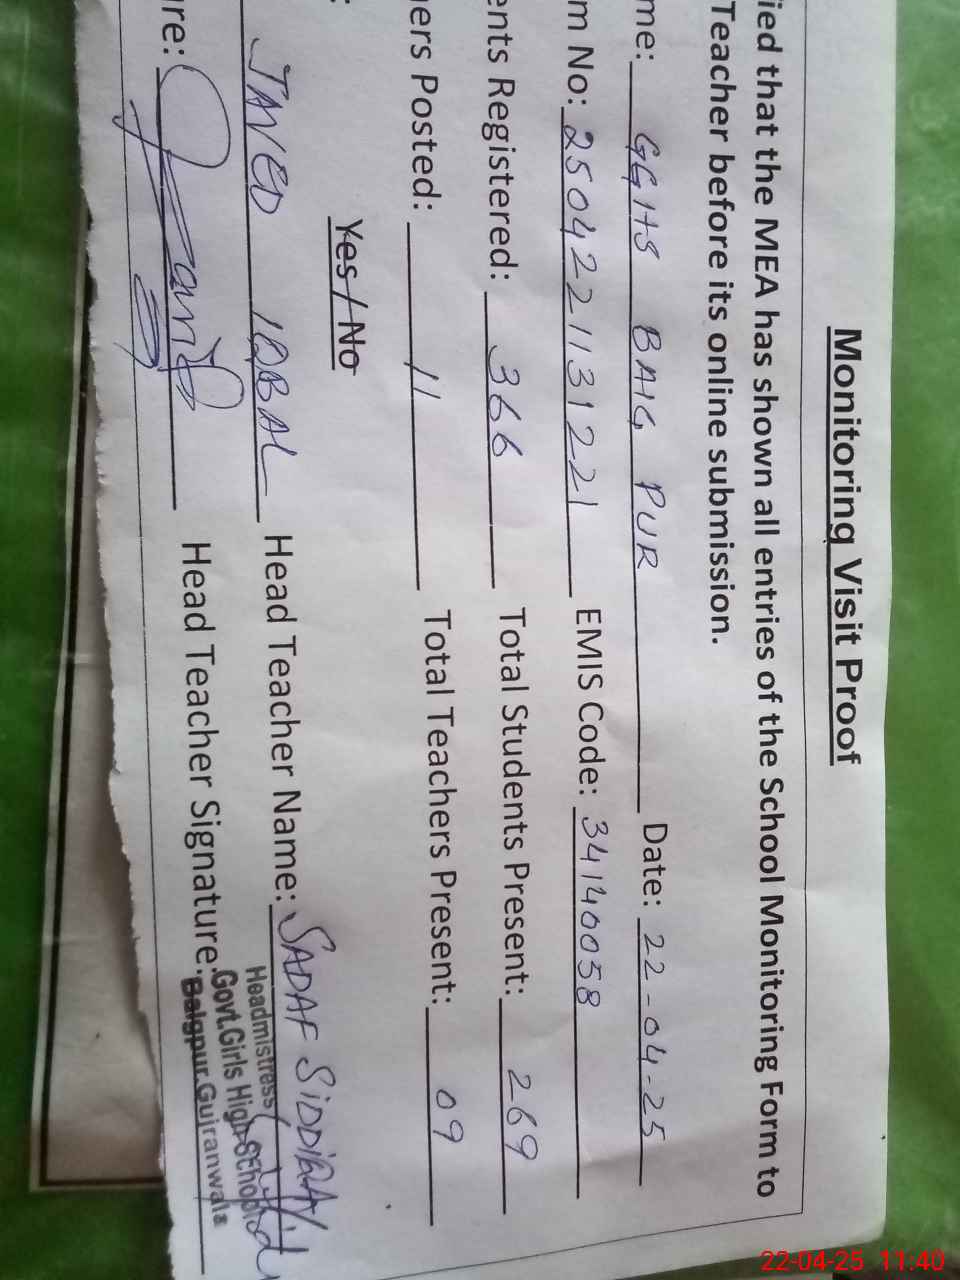 Monitoring Visit Proof
ied that the MEA has shown all entries of the School Monitoring Form to
Teacher before its online submission.
me: GGHS BAIG PUR Date: 22-04-25
m No: 2504221131221 EMIS Code: 34140058
ents Registered: 366 Total Students Present: 269
ers Posted: 11 Total Teachers Present: 09
Yes / No
JAVED IQBAL Head Teacher Name: SADAF SIDDIQA
re: Head Teacher Signature:
Headmistress
Govt.Girls High School
Baigpur Gujranwala
22-04-25 11:40